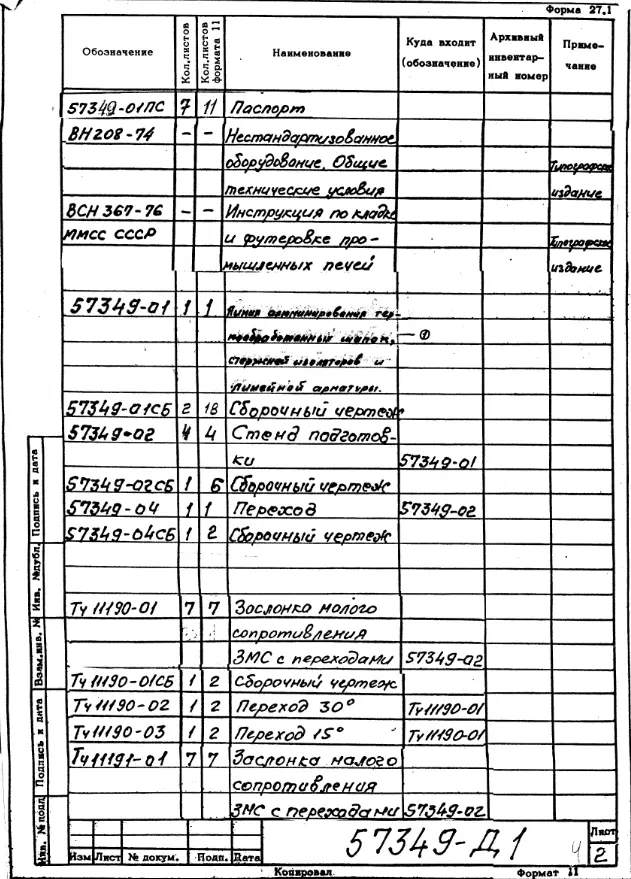 Форма 27.1
Обозначение Кол.листов Кол.листов формата 11 Наименование Куда входит (обозначение) Архивный инвентарный номер Примечание
57349-01ПС 7 11 Паспорт
ВН208-74 – – Нестандартизованное
оборудование. Общие
технические условия издание
ВСН 367-76 – – Инструкция по кладке
ММСС СССР и футеровке про-
мышленных печей издание
57349-01 1 1 Линия алитирования тер-
мообработанный шапок, – ①
стержней изоляторов и
линейной арматуры.
57349-01СБ 2 18 Сборочный чертеж
57349-02 4 4 Стенд подготов-
ки 57349-01
57349-02СБ 1 6 Сборочный чертеж
57349-04 1 1 Переход 57349-02
57349-04СБ 1 2 Сборочный чертеж
Ту 11190-01 7 7 Заслонка малого
сопротивления
ЗМС с переходами 57349-02
Ту 11190-01СБ 1 2 Сборочный чертеж
Ту 11190-02 1 2 Переход 30° Ту 11190-01
Ту 11190-03 1 2 Переход 15° Ту 11190-01
Ту 11191-01 7 7 Заслонка малого
сопротивления
ЗМС с переходами 57349-02
Подпись и дата
Инв. № дубл.
Взам. инв. №
Подпись и дата
Инв. № подл.
Изм Лист № докум. Подп. Дата
57349-Д1
4
Лист
2
Копировал
Формат 11